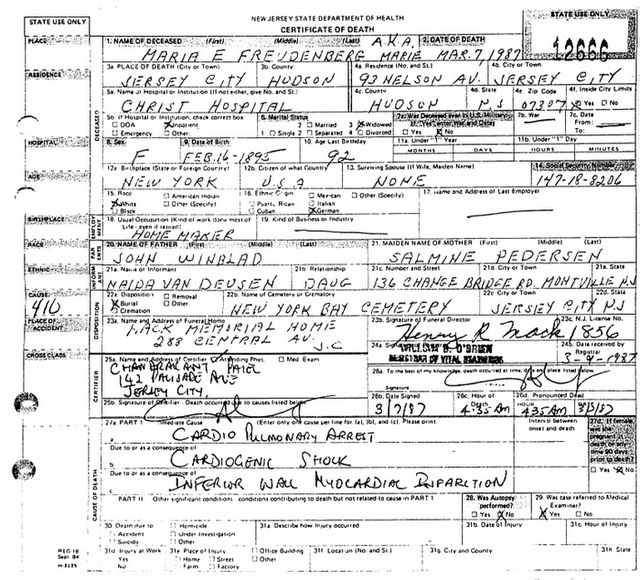 STATE USE ONLY
NEW JERSEY STATE DEPARTMENT OF HEALTH
CERTIFICATE OF DEATH
STATE USE ONLY
12666
PLACE
1. NAME OF DECEASED (First) (Middle) (Last) A.K.A. 2. DATE OF DEATH
MARIA E FREUDENBERG MARIE MAR. 7, 1987
3a PLACE OF DEATH (City or Town) 3b. County 4a Residence (No. and St.) 4b. City or Town
RESIDENCE
JERSEY CITY HUDSON 93 NELSON AV. JERSEY CITY
5a. Name of Hospital or Institution (If not either, give No. and St.) 4c. County 4d. State 4e. Zip Code 4f. Inside City Limits
CHRIST HOSPITAL HUDSON N.J 07307 Yes No
5b. If Hospital or Institution, check correct box 6. Marital Status 7a. Was Deceased ever in U.S. Military 7b. War 7c. Date
DOA Inpatient 2 Married 3 Widowed From:
Emergency Other 1 Single 2 Separated 4 Divorced Yes No To:
HOSPITAL
DECEASED
8. Sex 9. Date of Birth 10. Age Last Birthday 11a. Under "1" Year 11b. Under "1" Day
MONTHS DAYS HOURS MINUTES
F FEB. 16-1895 92
12a Birthplace (State or Foreign Country) 12b. Citizen of what Country 13. Surviving Spouse (If Wife, Maiden Name) 14. Social Security Number
NEW YORK U.S.A NONE 147-18-8206
15. Race American Indian 16. Ethnic Origin Mexican Other (Specify) 17. Name and Address of Last Employer
White Other (Specify) Puerto Rican Italian
Black Cuban German
BIRTHPLACE
18. Usual Occupation (Kind of work done most of Life - even if retired) 19. Kind of Business or Industry
HOME MAKER
RACE
20. NAME OF FATHER (First) (Middle) (Last) 21. MAIDEN NAME OF MOTHER (First) (Middle) (Last)
PARENTS
JOHN WINBLAD SALMINE PEDERSEN
ETHNIC
21a. Name of Informant 21b. Relationship 21c. Number and Street 21d. City or Town 21e. State
INFORMANT
NAIDA VAN DEUSEN DAUG 136 CHANGE BRIDGE RD. MONTVILLE N.J
CAUSE
410
22a Disposition 22b. Name of Cemetery or Crematory 22c. City or Town 22d. State
Burial Removal
Cremation Other
NEW YORK BAY CEMETERY JERSEY CITY NJ
PLACE OF ACCIDENT
DISPOSITION
23a. Name and Address of Funeral Home 23b. Signature of Funeral Director 23c. N.J. License No.
MACK MEMORIAL HOME Henry R Mack 1856
288 CENTRAL AV. J.C
24a. Signature WILLIAM B. O'BRIEN 24b. Date received by Registrar
REGISTRAR OF VITAL STATISTICS 3-9-1987
CROSS CLASS
25a. Name and Address of Certifier Attending Phys. Med. Exam.
CHANDRAKANT PATEL
142 PALISADE AVE
JERSEY CITY.
26a. To the best of my knowledge, death occurred at time, date and place listed below.
Signature
CERTIFIER
25b. Signature of Certifier - Death occurred due to causes listed below. 26b. Date Signed 26c. Hour of Death 26d. Pronounced Dead
3/7/87 4:35 AM HOUR 4:35 AM 3/7/87
27a. PART I Immediate Cause (Enter only one cause per line for (a), (b), and (c). Please print) Interval between onset and death 27d. If female, was she pregnant at death, or any time 90 days prior to death?
a. CARDIO PULMONARY ARREST
Due to or as a consequence of
b. CARDIOGENIC SHOCK
Due to or as a consequence of
Yes No
c. INFERIOR WALL MYOCARDIAL INFARCTION
CAUSE OF DEATH
PART II Other significant conditions conditions contributing to death but not related to cause in PART I 28. Was Autopsy performed? 29. Was case referred to Medical Examiner?
Yes No Yes No
30. Death due to: Homicide 31a. Describe how Injury occurred 31b. Date of Injury 31c. Hour of Injury
Accident Under Investigation
Suicide Other
REG-18
Sept. 84
H-3135
31d Injury at Work 31e Place of Injury Office Building 31f Location (No. and St.) 31g City and County 31h State
Yes Home Street Other
No Farm Factory